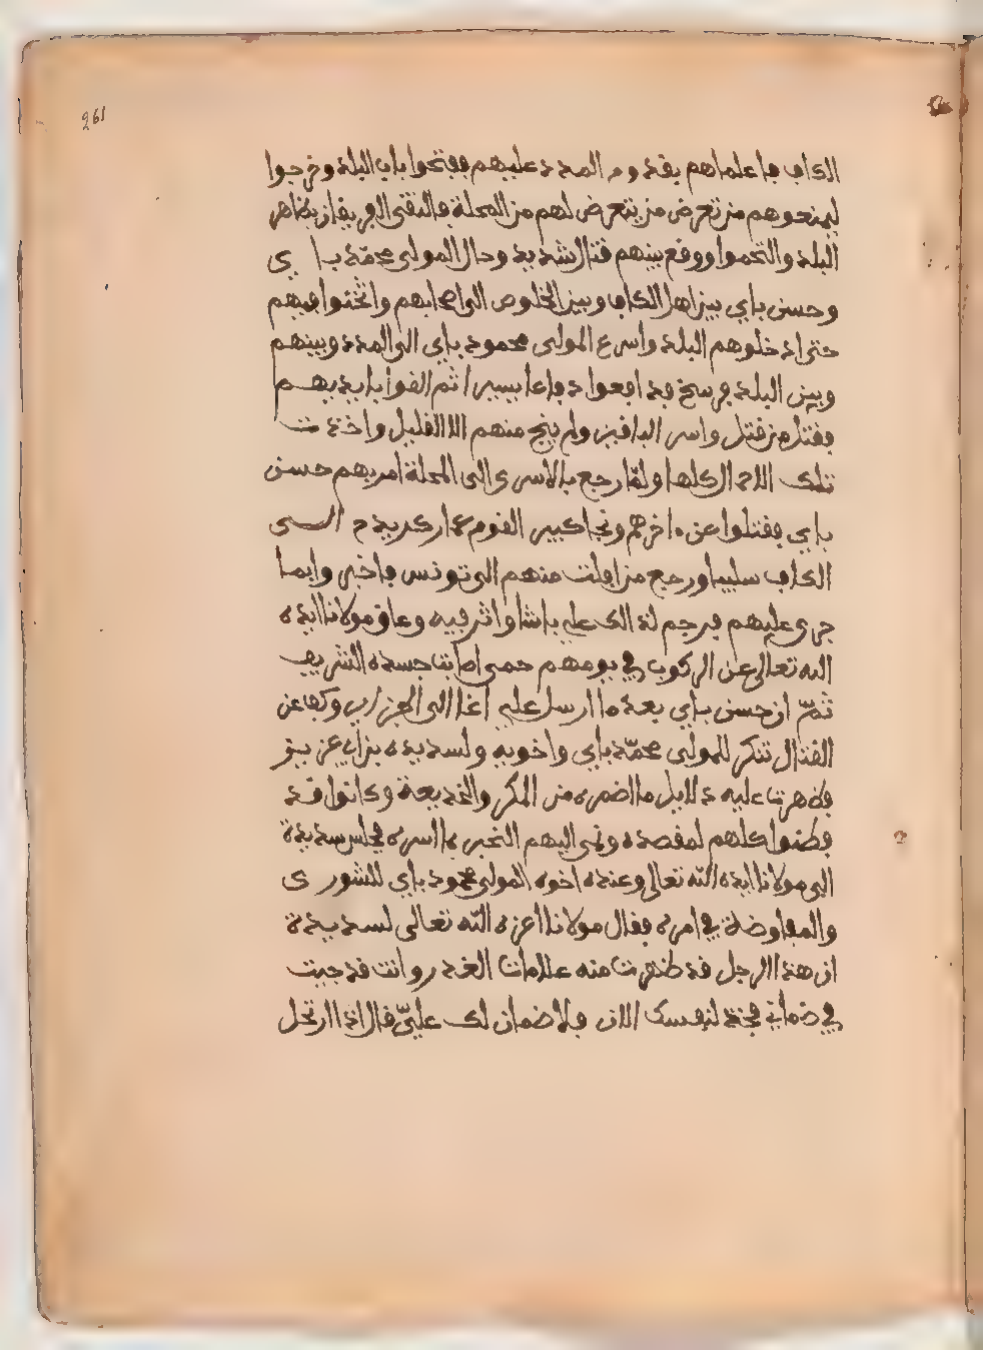 261
الكاف فاعلماهم بقدوم المدد عليهم ففتحوا باب البلد وخرجوا
ليمنعوهم من تعرض من يتعرض لهم من المحلة فالتقى الفريقان بظاهر
البلد والتحموا ووقع بينهم قتال شديد وحال المولى محمّد باي
وحسن باي بين اهل الكاف وبين الخلوص الى اصحابهم واثخنوا فيهم
حتى ادخلوهم البلد واسرع المولى محمود باي الى المدد وبينهم
وبين البلد فرسخ فدافعوا دفاعا يسيرا ثم القوا بايديهم
فقتل من قتل واسر الباقين ولم ينج منهم الا القليل واخذت
تلك الاحمال كلها ولمّا رجع بالاسرى الى المحلة امر بهم حسن
باي فقتلوا عن ءاخرهم ونجا كبير القوم الى
الكاف سليبا ورجع من افلت منهم الى تونس فاخبروا بما
جرى عليهم فوجم لذلك علي باشا واثر فيه وعاق مولانا ايده
الله تعالى عن الركوب في يومهم حمى اصابت جسده الشريف
ثمّ ان حسن باي بعد ما ارسل عليه اغا الى الجزاير وكفا عن
القتال تنكر للمولى محمّد باي واخويه ولسديده بن اي عزيز
فظهرت عليه دلايل ما اضمره من المكر والخديعة وكانوا قد
فطنوا كلهم لمقصده ونمى اليهم الخبر بما اسره فجلس سديدة
الى مولانا ايده الله تعالى وعنده اخوه المولى محمود باي للشورى
والمفاوضة في امره فقال مولانا اعزه الله تعالى لسديدة
ان هذا الرجل قد ظهرت منه علامات الغدر وانت قد جيت
في ضماني فخذ لنفسك الان فلا ضمان لك عليّ قال اذا ارتحل